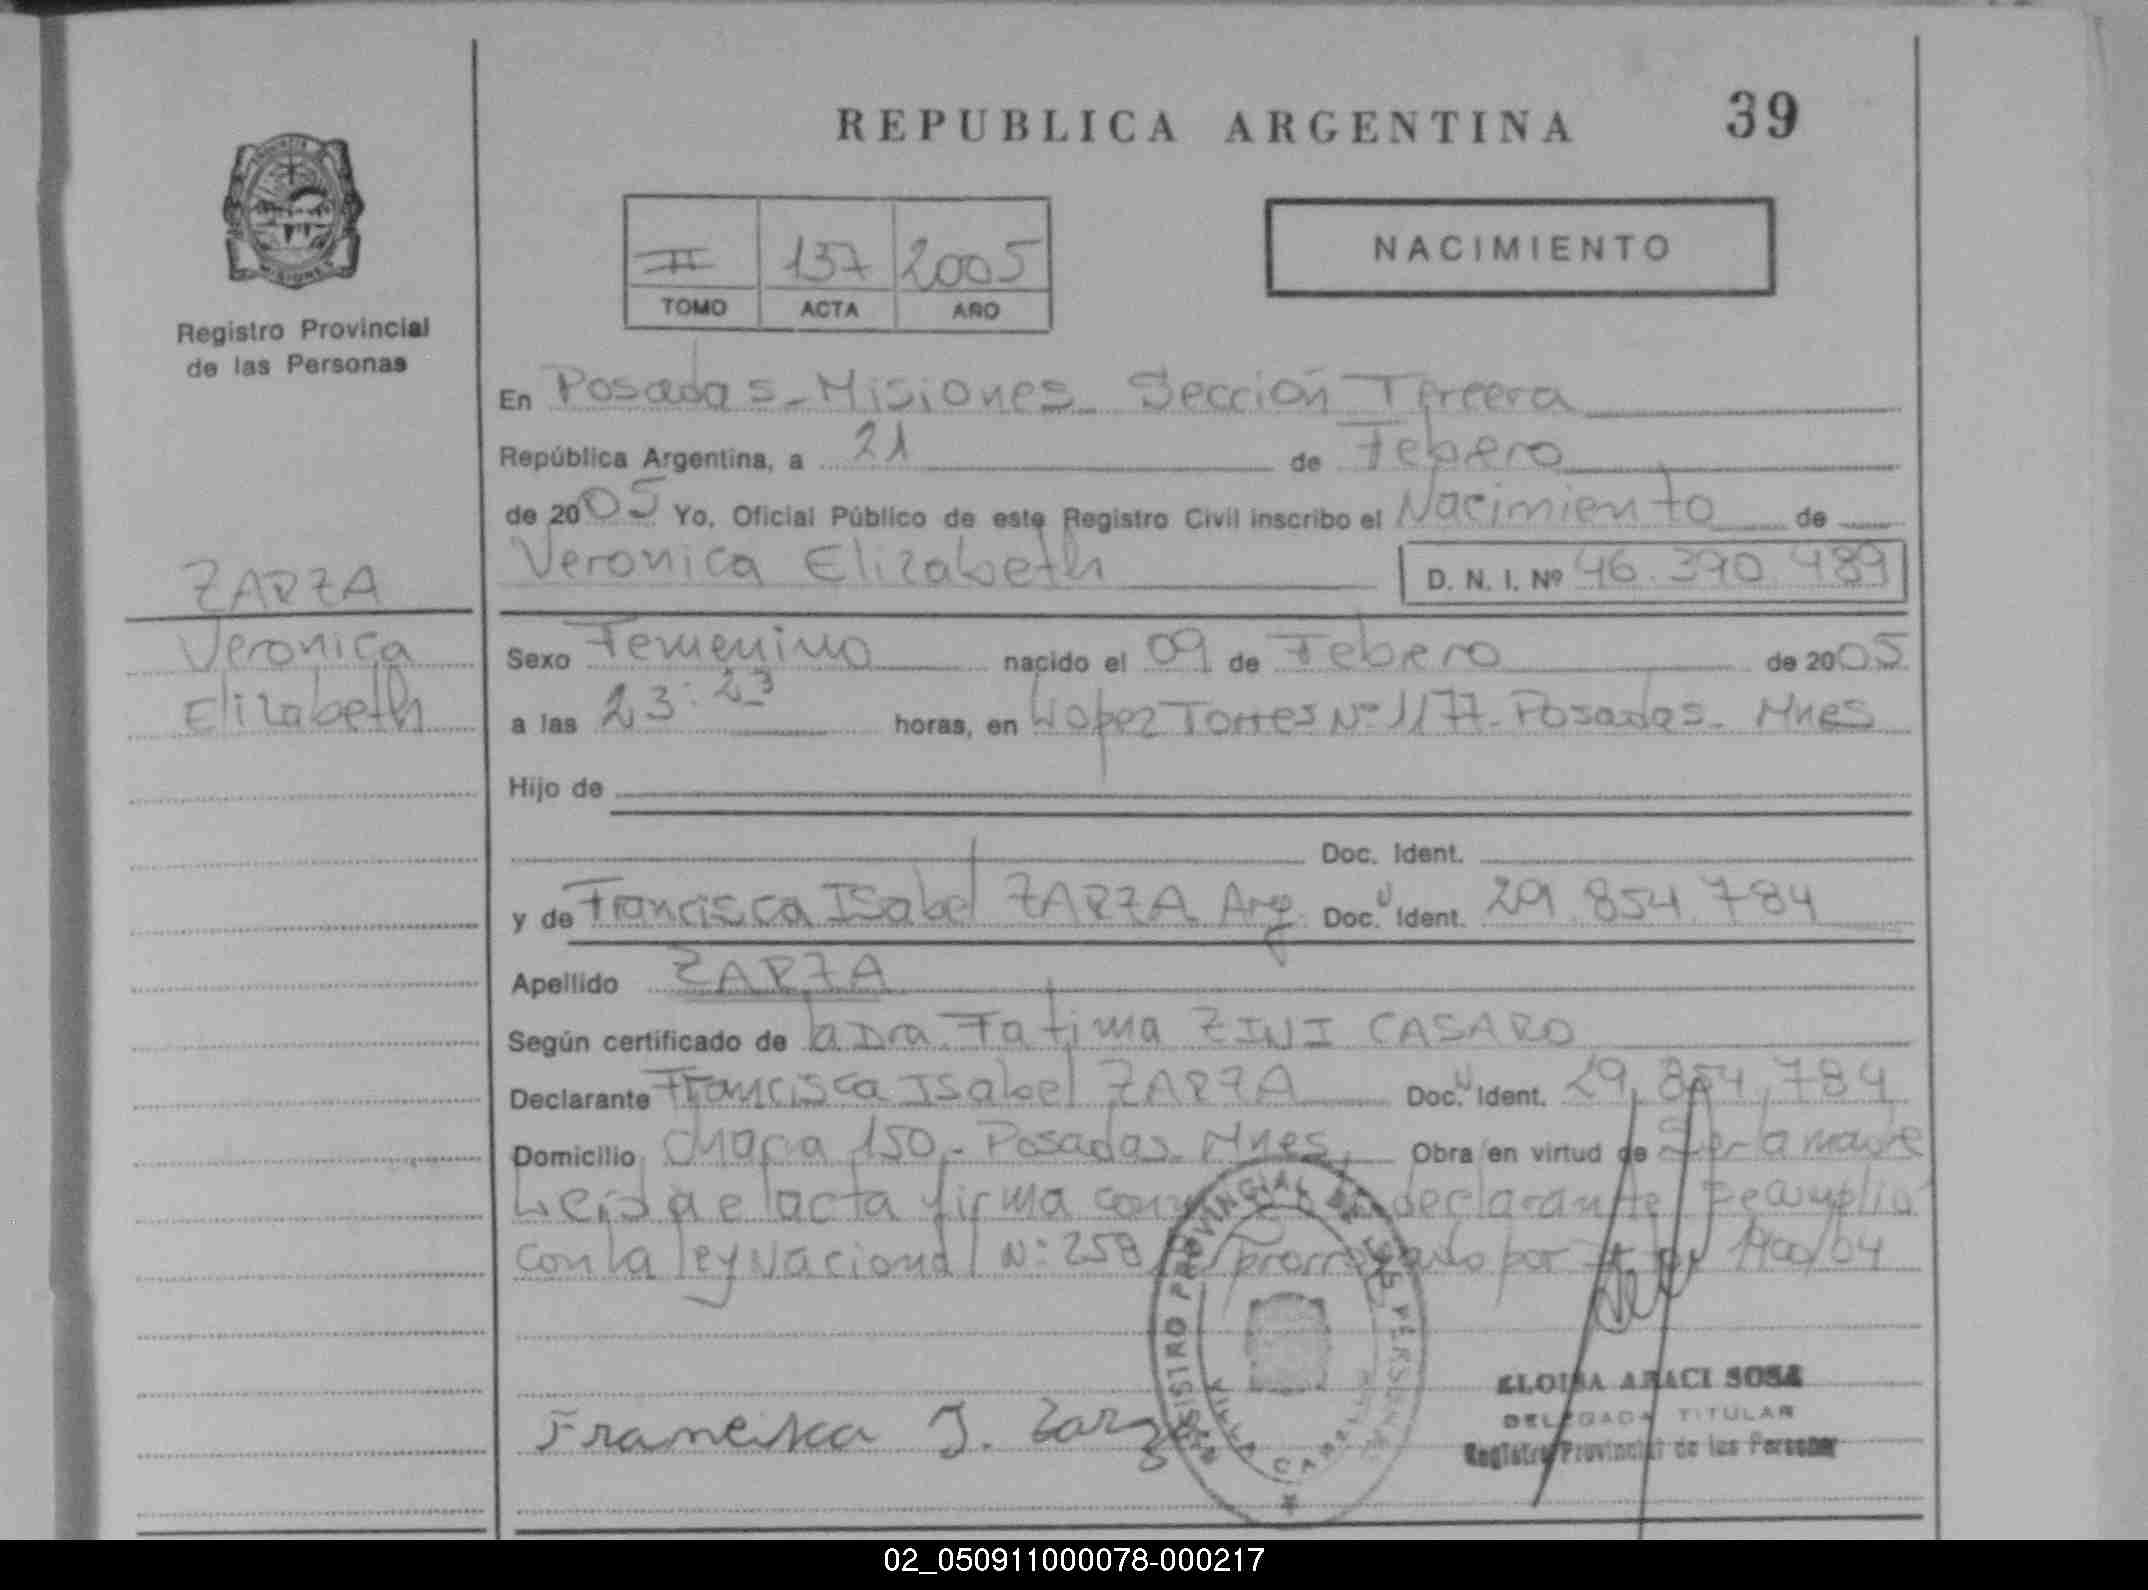 REPUBLICA ARGENTINA
39
MISIONES
Registro Provincial
de las Personas
II 137 2005
TOMO ACTA AÑO
NACIMIENTO
En Posadas - Misiones - Sección Tercera
República Argentina, a 21 de Febero
de 2005 Yo, Oficial Público de este Registro Civil inscribo el Nacimiento de
Veronica Elizabeth D. N. I. Nº 46.390.489
ZARZA
Veronica
Elizabeth
Sexo Femenino nacido el 09 de Febero de 2005
a las 23:23 horas, en López Torres Nº 1177 - Posadas - Mnes
Hijo de
Doc. Ident.
y de Francisca Isabel ZARZA Arg. Doc. Ident. 29.854.784
Apellido ZARZA
Según certificado de la Dra. Fatima ZINI CASARO
Declarante Francisca Isabel ZARZA Doc. Ident. 29.854.784
Domicilio Chacra 150 - Posadas - Mnes, Obra en virtud de Ser la madre
Leida el acta firma declarante
con la ley Nacional Nº 258 prorrogado por 1400/04
REGISTRO PROVINCIAL DE LAS PERSONAS
VILLA CABELLO
Francisca I. Zarza
ELOISA ARACI SOSA
DELEGADA TITULAR
Registro Provincial de las Personas
02_050911000078-000217